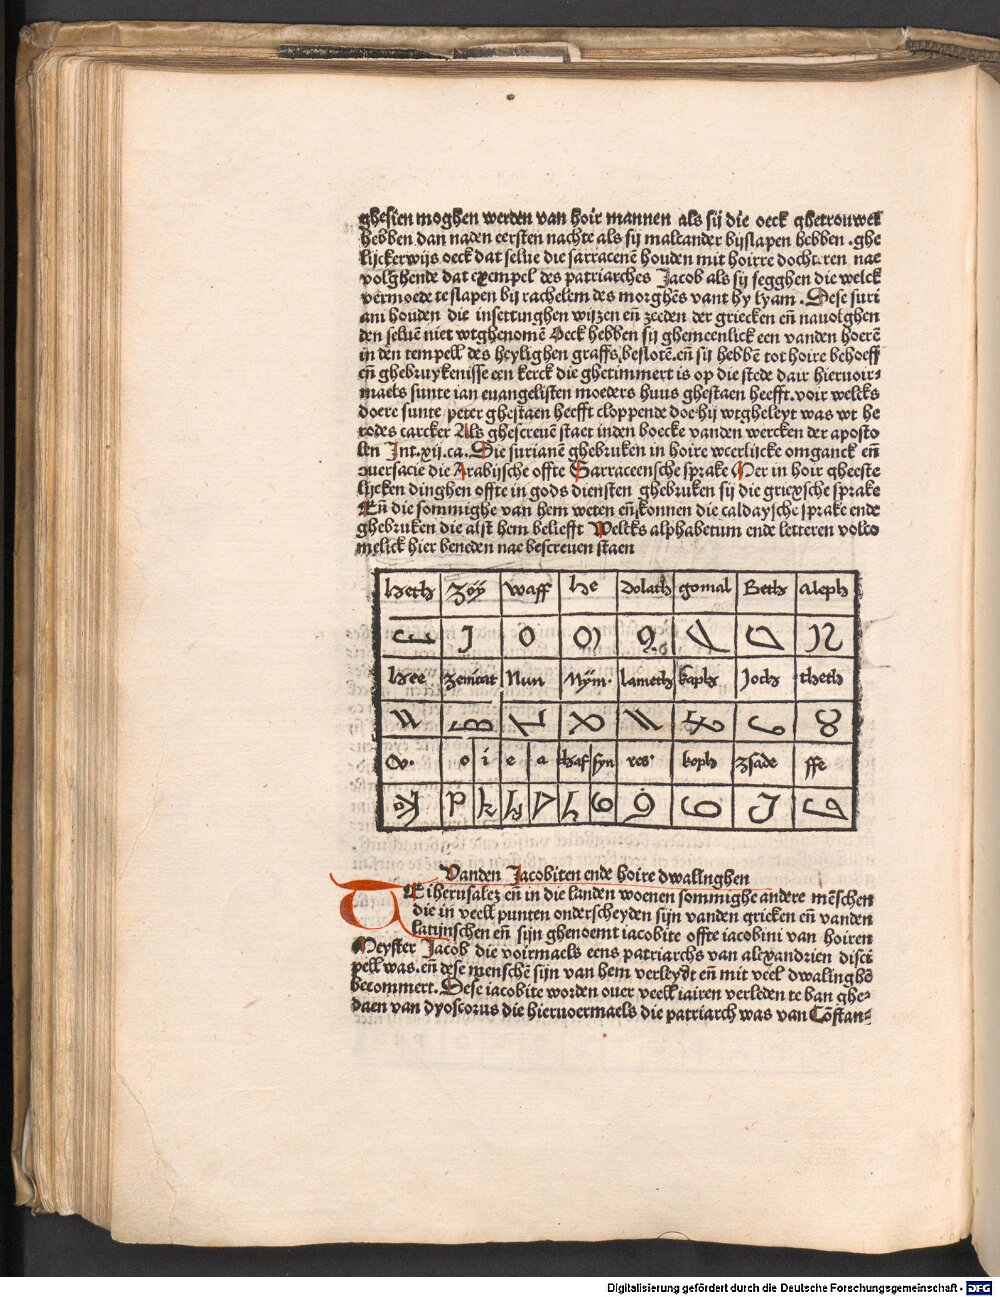 ghesien moghen werden van hoir mannen als sij die oeck ghetrouwet
hebben dan naden eersten nachte als sij malcander bijslapen hebben .ghe
lijckerwijs oeck dat selue die sarracenē houden mit hoirre docht.ren nae
volghende dat exempel des patriarches Jacob als sij segghen die welck
vermoede te slapen bij rachelem des morghēs vant hy lyam . Dese suri
ani houden die insettinghen wijzen eñ zeeden der griecken eñ nauolghen
den seluē niet wtghenomē Oeck hebben sij ghemeenlick een vanden hoerē
in den tempell des heylighen graffs beslotē.eñ sij hebbē tot hoire behoeff
eñ ghebruykenisse een kerck die ghetimmert is op die stede dair hieruoir-
maels sunte ian euangelisten moeders huus ghestaen heefft.voir welcks
doere sunte peter ghestaen heefft cloppende doe hij wtgheleyt was wt he
rodes carcker Als ghescreuē staet inden boecke vanden wercken der aposto
len Int.xij.ca. Die surianē ghebruken in hoire weerlijcke omganck eñ
ouersacie die Arabijsche offte Sarraceensche sprake Mer in hoir gheeste
lijcken dinghen offte in gods diensten ghebruken sij die griexsche sprake
Eñ die sommighe van hem weten eñ konnen die caldaysche sprake ende
ghebruken die alst hem beliefft Welcks alphabetum ende letteren volco
melick hier beneden nae bescreuen staen
heth zöÿ waff he Dolath gomal Beth Aleph
hee zemcat Nun Mÿm. lameth kaphs Joth theth
Ov. o i e a thaf syn res koph zsade ffe
Vanden Jacobiten ende hoire dwalinghen
TEiherusalez eñ in die landen woenen sommighe andere mēschen
die in veell punten onderscheyden sijn vanden grieken eñ vanden
latijnschen eñ sijn ghenoemt iacobite offte iacobini van hoiren
Meyster Jacob die voirmaels eens patriarchs van alexandrien disci
pell was.eñ dese menschē sijn van hem verleydt eñ mit veel dwalinghē
becommert. Dese iacobite worden ouer veell iairen verleden te ban ghe-
daen van dyoscorus die hieruoermaels die patriarch was van Cōstan-
Digitalisierung gefördert durch die Deutsche Forschungsgemeinschaft - DFG